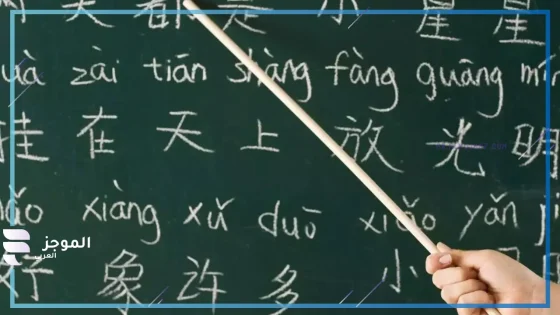 天 都 是 小 星 星
uà zài tiān shàng fàng guāng mí
挂 在 天 上 放 光 明
ǎo xiàng xǔ duō xiǎo yǎn
好 象 许 多 小
الموجز
العربي